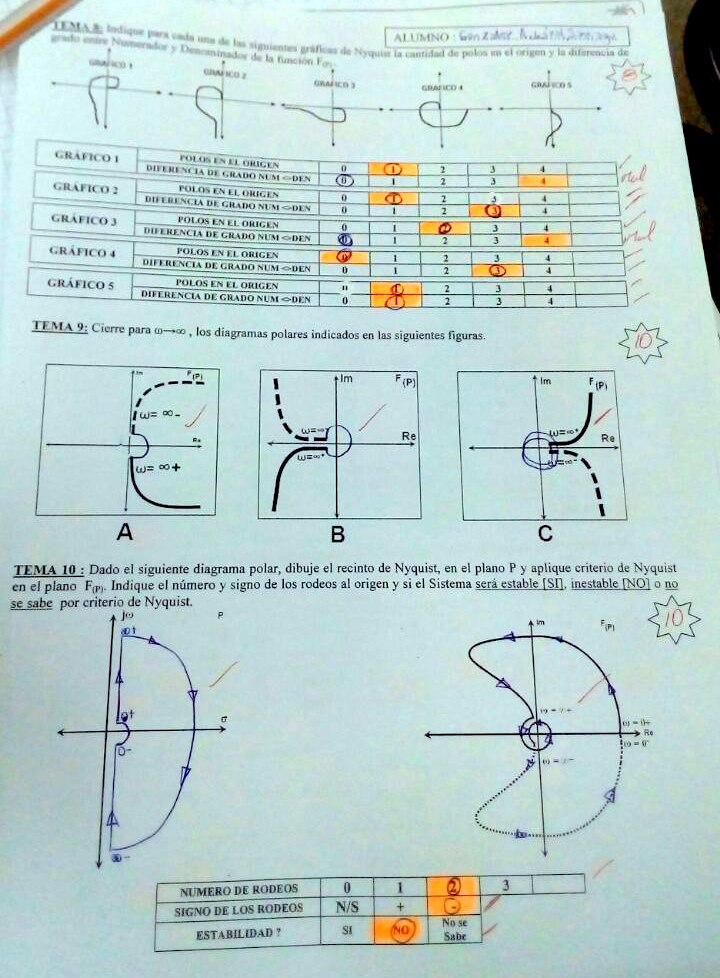 TEMA 8: Indique para cada una de las siguientes gráficas de Nyquist la cantidad de polos en el origen y la diferencia de
grado entre Numerador y Denominador de la función F(P).
ALUMNO :
GRAFICO 1
GRAFICO 2
GRAFICO 3
GRAFICO 4
GRAFICO 5
8
GRÁFICO 1 POLOS EN EL ORIGEN 0 1 2 3 4
DIFERENCIA DE GRADO NUM <>DEN 0 1 2 3 4 mal
GRÁFICO 2 POLOS EN EL ORIGEN 0 1 2 3 4
DIFERENCIA DE GRADO NUM <>DEN 0 1 2 3 4
GRÁFICO 3 POLOS EN EL ORIGEN 0 1 2 3 4
DIFERENCIA DE GRADO NUM <>DEN 0 1 2 3 4 mal
GRÁFICO 4 POLOS EN EL ORIGEN 0 1 2 3 4
DIFERENCIA DE GRADO NUM <>DEN 0 1 2 3 4
GRÁFICO 5 POLOS EN EL ORIGEN 0 1 2 3 4
DIFERENCIA DE GRADO NUM <>DEN 0 1 2 3 4
TEMA 9: Cierre para ω→∞ , los diagramas polares indicados en las siguientes figuras.
10
Im F(P)
ω= ∞ -
Re
ω= ∞+
A
Im F(P)
ω=∞-
Re
ω=∞+
B
Im F(P)
ω=∞+
Re
ω=∞-
C
TEMA 10 : Dado el siguiente diagrama polar, dibuje el recinto de Nyquist, en el plano P y aplique criterio de Nyquist
en el plano F(P). Indique el número y signo de los rodeos al origen y si el Sistema será estable [SI], inestable [NO] o no
se sabe por criterio de Nyquist.
10
jω P
∞+
0+
σ
0-
∞-
Im F(P)
ω = 0+
Re
ω = 0-
NUMERO DE RODEOS 0 1 2 3
SIGNO DE LOS RODEOS N/S + -
ESTABILIDAD ? SI NO No se
Sabe